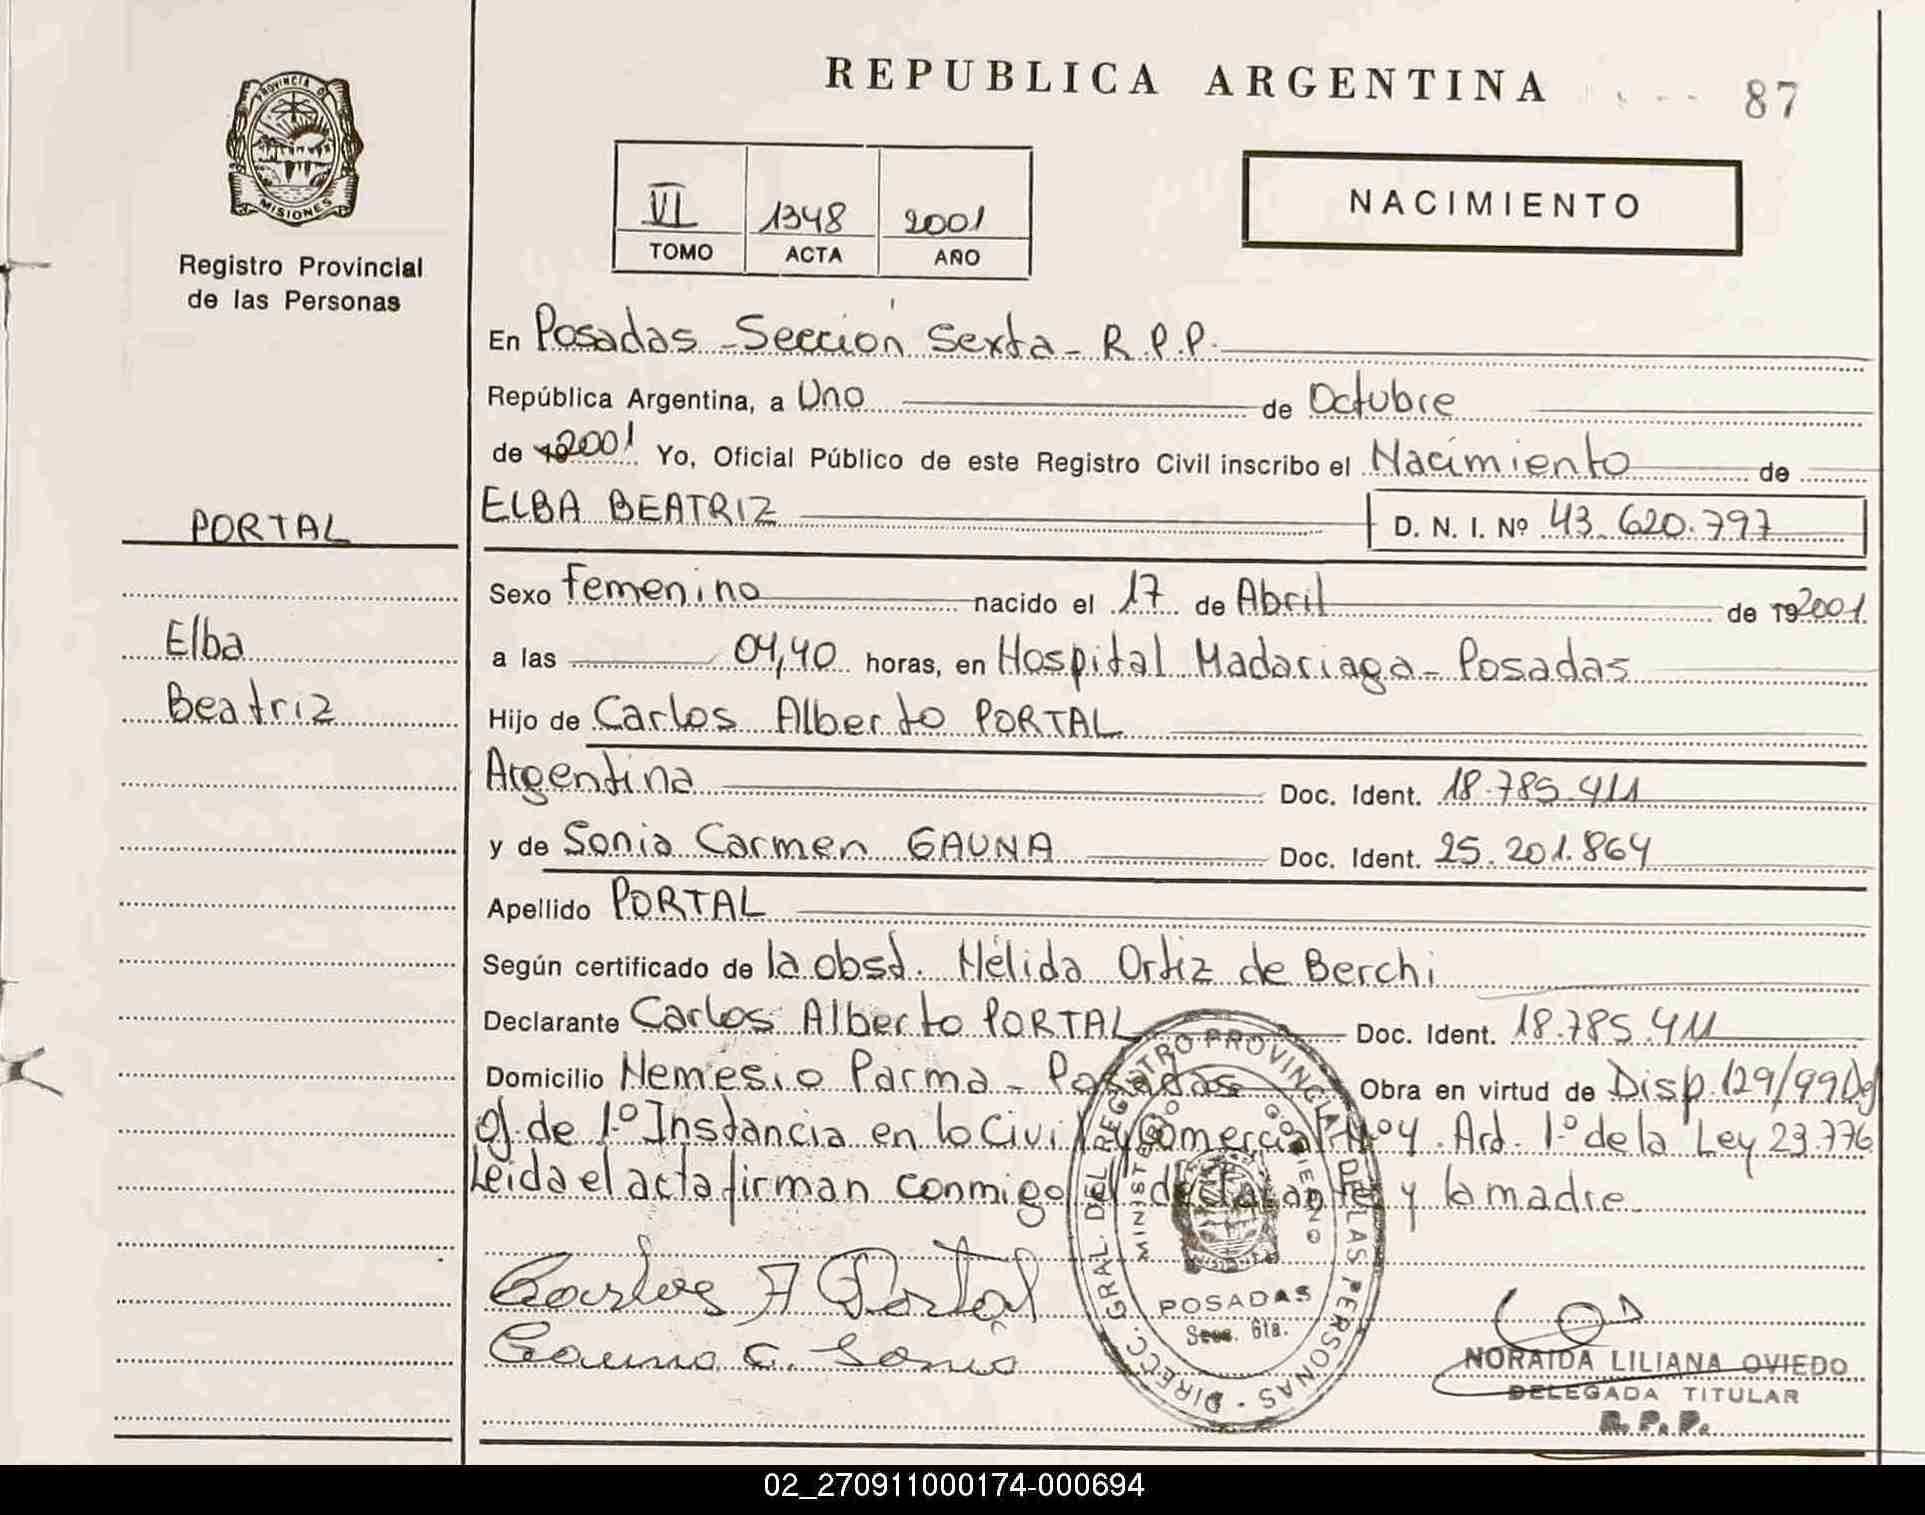 REPUBLICA ARGENTINA
87
PROVINCIA D
MISIONES
Registro Provincial
de las Personas
VI 1348 2001
TOMO ACTA AÑO
NACIMIENTO
En Posadas - Sección Sexta - R.P.P.
República Argentina, a Uno de Octubre
de 2001 Yo, Oficial Público de este Registro Civil inscribo el Nacimiento de
ELBA BEATRIZ D. N. I. Nº 43.620.797
PORTAL
Elba
Beatriz
Sexo Femenino nacido el 17 de Abril de 192001
a las 04,40 horas, en Hospital Madariaga - Posadas
Hijo de Carlos Alberto PORTAL
Argentina Doc. Ident. 18.785.411
y de Sonia Carmen GAUNA Doc. Ident. 25.201.864
Apellido PORTAL
Según certificado de la obst. Nélida Ortiz de Berchi
Declarante Carlos Alberto PORTAL Doc. Ident. 18.785.411
Domicilio Nemesio Parma - Posadas Obra en virtud de Disp. 129/99
de 1º Instancia en lo Civil y Comercial Nº 4. Art. 1º de la Ley 23.776
Leida el acta firman conmigo el declarante y la madre.
Carlos A Portal
Gauna C. Sonia
DIRECC. GRAL. DEL REGISTRO PROVINCIAL DE LAS PERSONAS
MINISTERIO GOBIERNO
POSADAS
Secc. 6ta.
NORAIDA LILIANA OVIEDO
DELEGADA TITULAR
R. P. P.
02_270911000174-000694